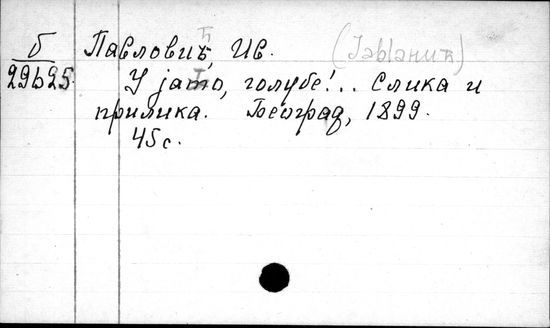 б Павловић, Ив. (Јаblаниħ)
29b25. У јато, голубе!.. Слика и
прилика. Београд, 1899.
45 с.